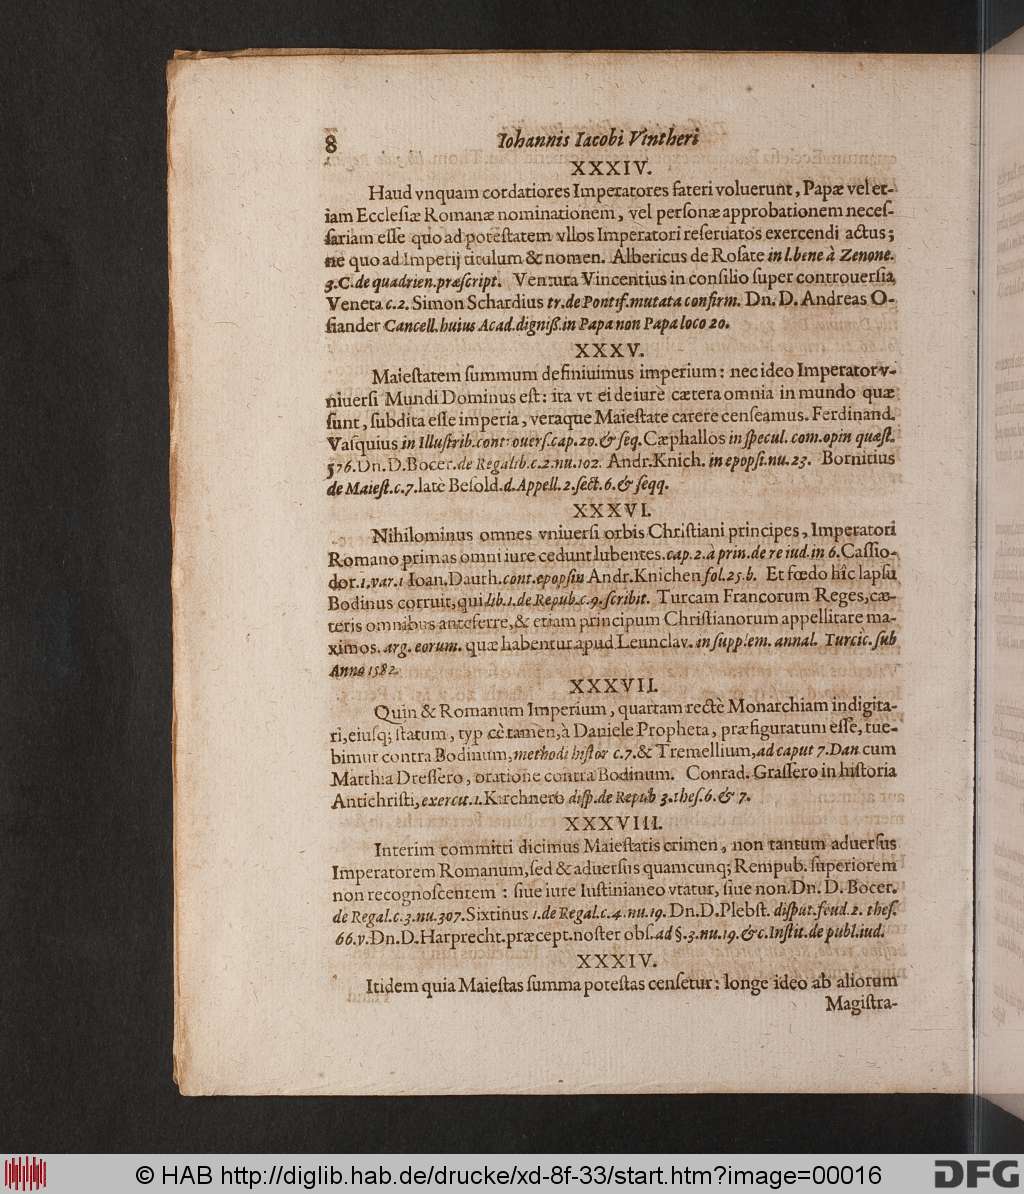 8 Iohannis Iacobi Vintheri
XXXIV.
Haud vnquam cordatiores Imperatores fateri voluerunt, Papæ vel et-
iam Ecclesiæ Romanæ nominationem, vel personæ approbationem neces-
sariam esse quo ad potestatem vllos Imperatori reseruatos exercendi actus;
ne quo ad Imperij titulum & nomen. Albericus de Rosate in l. bene à Zenone.
3. C. de quadrien. præscript. Ventura Vincentius in consilio super controuersia
Veneta c. 2. Simon Schardius tr. de Pontif. mutata confirm. Dn. D. Andreas O-
siander Cancell. huius Acad. digniß. in Papa non Papa loco 20.
XXXV.
Maiestatem summum definiuimus imperium: nec ideo Imperator v-
niuersi Mundi Dominus est: ita vt ei de iure cætera omnia in mundo quæ
sunt, subdita esse imperia, veraque Maiestate carere censeamus. Ferdinand.
Vasquius in Illustrib. controuers. cap. 20. & seq. Cæphallos in specul. com. opin quæst.
576. Dn. D. Bocer. de Regalib. c. 2. nu. 102. Andr. Knich. in epopsi. nu. 23. Bornitius
de Maiest. c. 7. latè Besold. d. Appell. 2. sect. 6. & seqq.
XXXVI.
Nihilominus omnes vniuersi orbis Christiani principes, Imperatori
Romano primas omni iure cedunt lubentes. cap. 2. à prin. de re iud. in 6. Cassio-
dor. 1. var. 1 Ioan. Dauth. cont. epopsin Andr. Knichen fol. 25. b. Et fœdo hîc lapsu
Bodinus corruit, qui lib. 1. de Repub. c. 9. scribit. Turcam Francorum Reges, cæ-
teris omnibus anteferre, & etiam principum Christianorum appellitare ma-
ximos. arg. eorum. quæ habentur apud Leunclav. in supplem. annal. Turcic. sub
Anno 1582.
XXXVII.
Quin & Romanum Imperium, quartam rectè Monarchiam indigita-
ri, eiusq; statum, typ cè tamen, à Daniele Propheta, præfiguratum esse, tue-
bimur contra Bodinum, methodi histor c. 7. & Tremellium, ad caput 7. Dan cum
Matthia Dressero, oratione contra Bodinum. Conrad. Grassero in historia
Antichristi, exercit. 1. Kirchnero disp. de Repub 3. thes. 6. & 7.
XXXVIII.
Interim committi dicimus Maiestatis crimen, non tantum aduersus
Imperatorem Romanum, sed & aduersus quamcunq; Rempub. superiorem
non recognoscentem: siue iure Iustinianeo vtatur, siue non. Dn. D. Bocer.
de Regal. c. 3. nu. 307. Sixtinus 1. de Regal. c. 4. nu. 19. Dn. D. Plebst. disput. feud. 2. thes.
66. v. Dn. D. Harprecht. præcept. noster obs. ad §. 3. nu. 19. &c. Instit. de publ. iud.
XXXIV.
Itidem quia Maiestas summa potestas censetur: longe ideo ab aliorum
Magistra-
© HAB http://diglib.hab.de/drucke/xd-8f-33/start.htm?image=00016
DFG